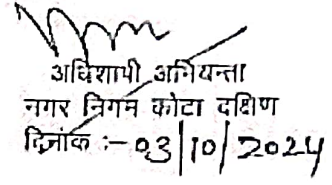 अधिशाषी अभियन्ता
नगर निगम कोटा दक्षिण
दिनांक :- 03/10/2024